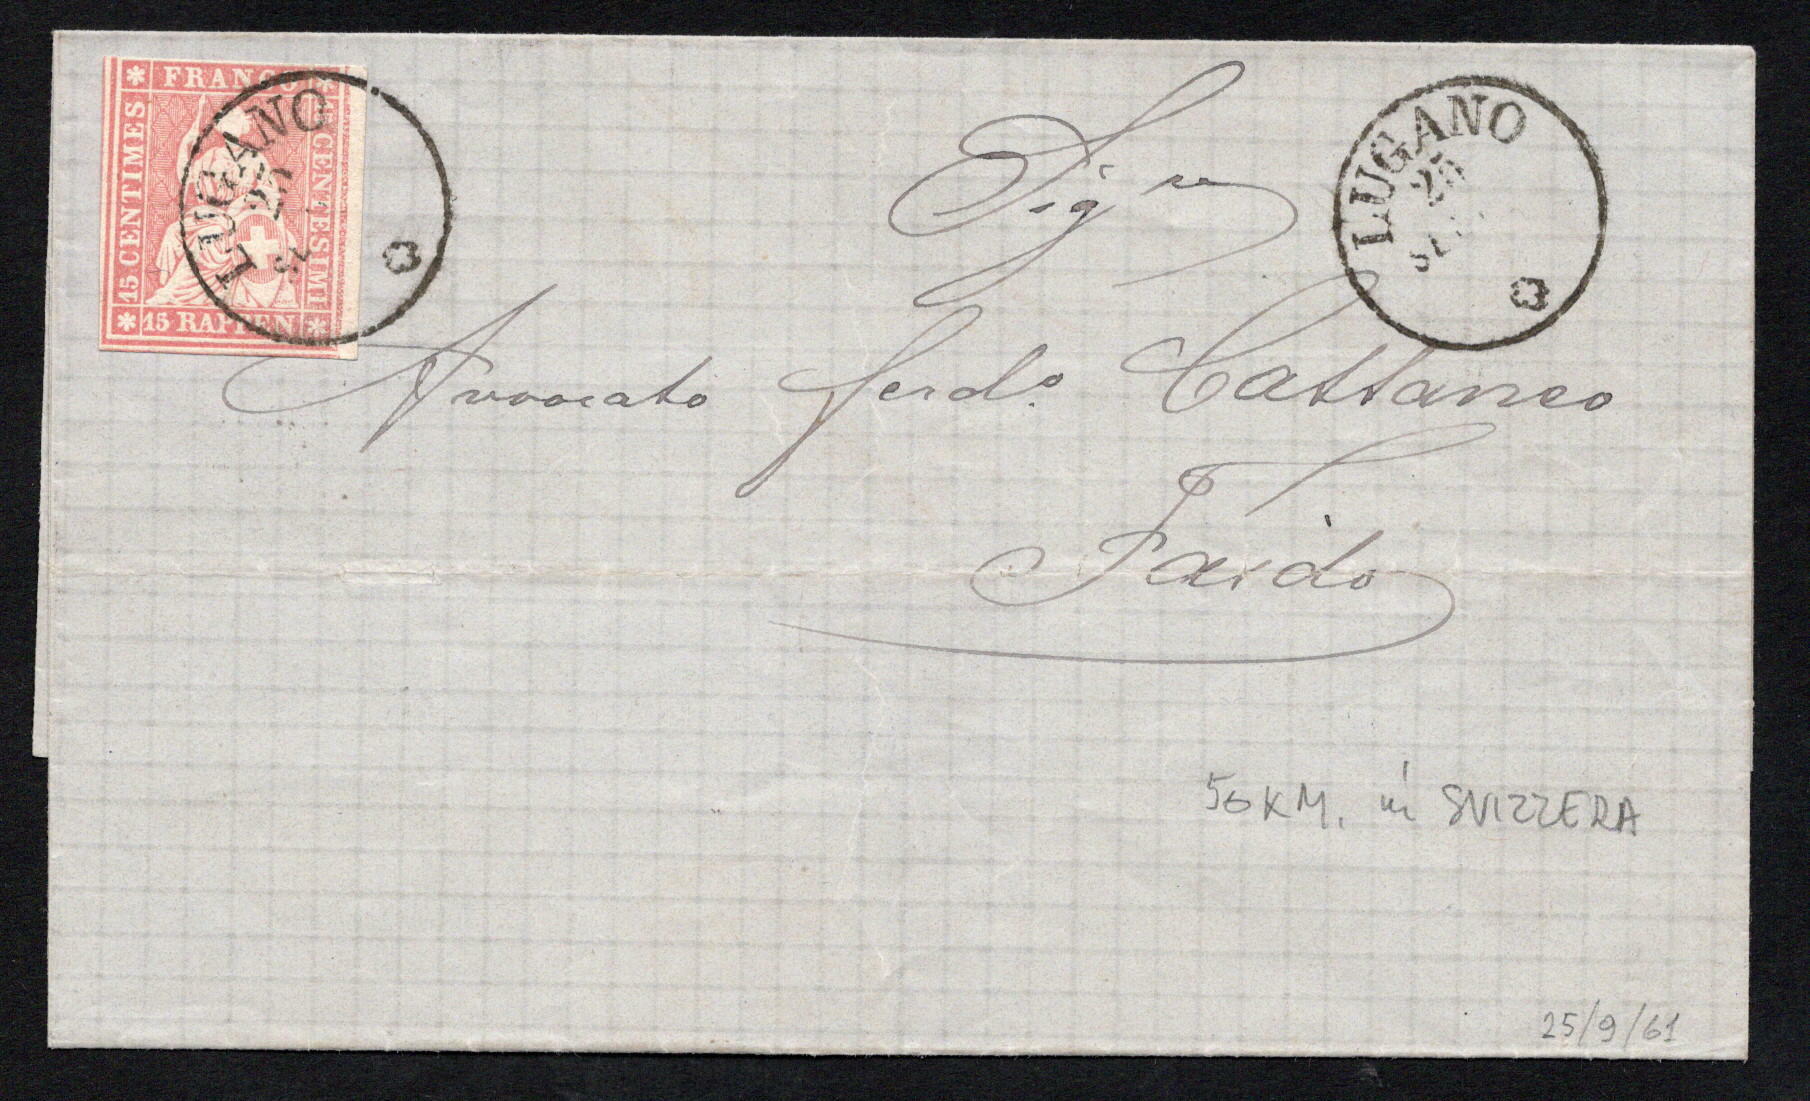 FRANCO
15 CENTIMES
15 CENTESIMI
15 RAPPEN
LUGANO
25
LUGANO
25
Sigre
Avvocato Ferdo. Cattaneo
Faido
50 KM. in SVIZZERA
25/9/61